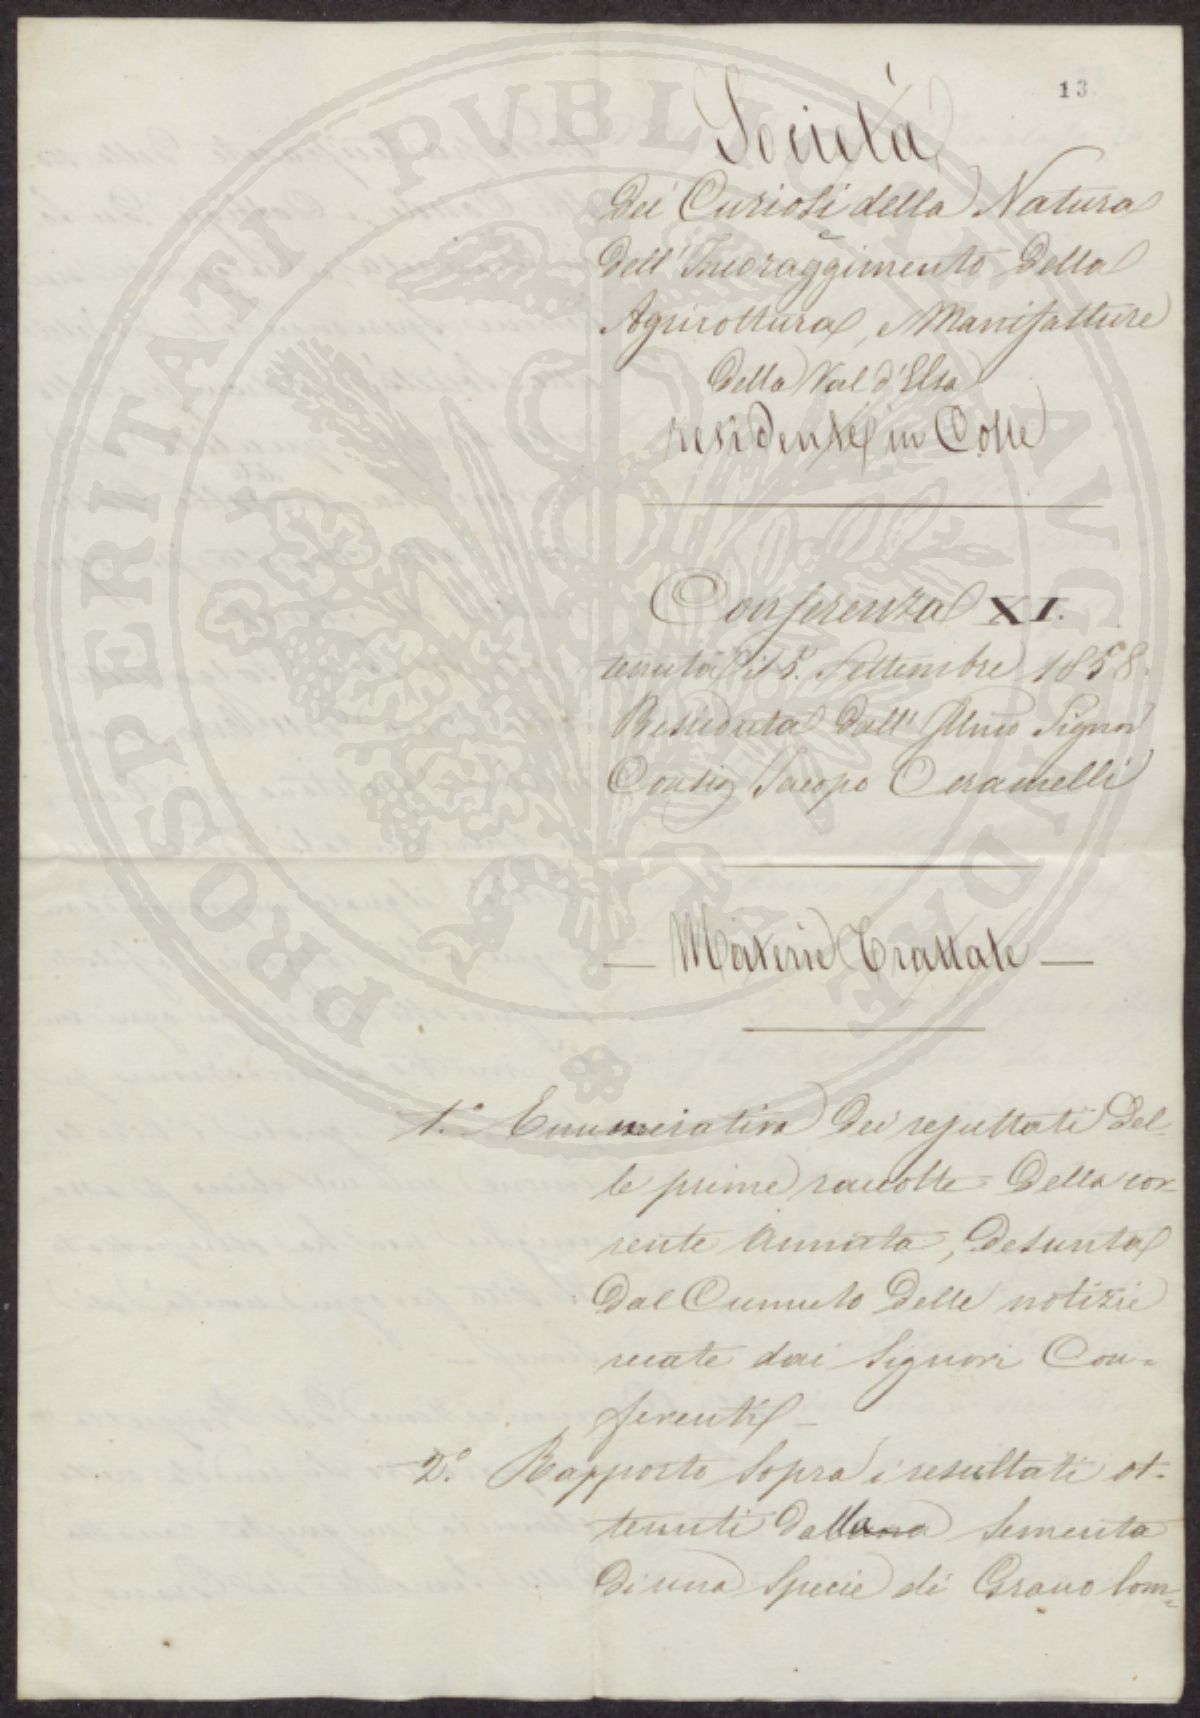 13
Società
dei Curiosi della Natura
e
dell'Incoraggimento della
Agricoltura, e Manifatture
della Val d'Elsa
residente in Colle
Conferenza XI.
tenuta il 5. Settembre 1858.
Presieduta dall' Illmo Signor
Consig Jacopo Ceramelli
— Materie Trattate —
1.° Enumerativa dei resultati del-
le prime raccolte della cor-
rente annata, desunta
dal Cumulo delle notizie
recate dai Signori Con-
ferenti —
2.° Rapporto sopra i resultati ot-
tenuti dalla sementa
di una specie di Grano lom-
PROSPERITATI PVBLICAE AVGENDAE